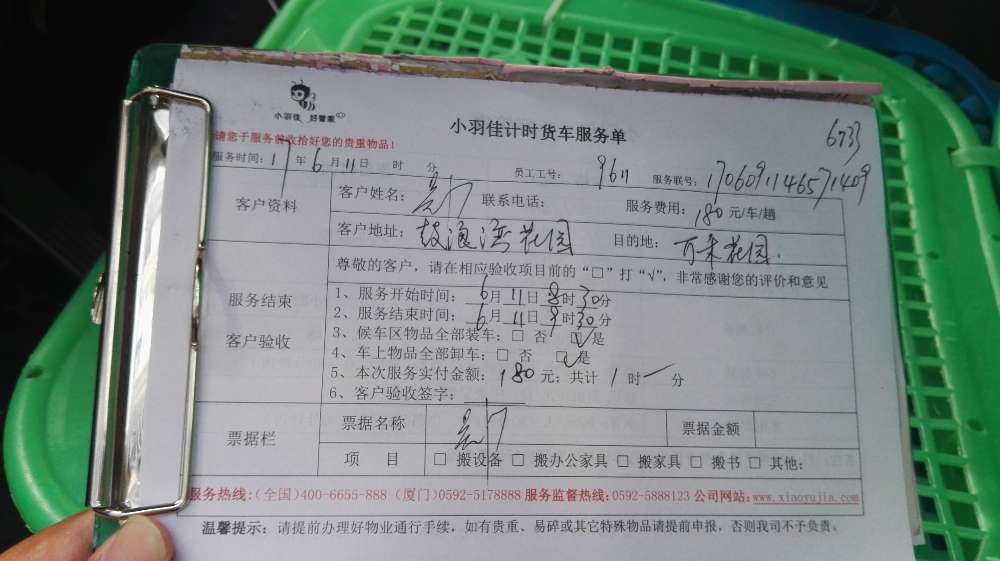 小羽佳 好管家
小羽佳计时货车服务单
6733
请您于服务前收拾好您的贵重物品！
服务时间：17年6月11日 时 分 员工工号： 9611 服务联号：1706091146571409
客户资料 客户姓名： 联系电话： 服务费用：180元/车/趟
客户地址：鼓浪湾花园 目的地：万禾花园
尊敬的客户，请在相应验收项目前的“□”打“√”，非常感谢您的评价和意见
服务结束
客户验收
1、服务开始时间：6月11日8时30分
2、服务结束时间：6月11日9时30分
3、候车区物品全部装车：□ 否 ☑是
4、车上物品全部卸车：□ 否 ☑是
5、本次服务实付金额：180元；共计 1 时一分
6、客户验收签字：
票据栏 票据名称 票据金额
项 目 □ 搬设备 □ 搬办公家具 □ 搬家具 □ 搬书 □ 其他:
服务热线:(全国)400-6655-888 (厦门)0592-5178888 服务监督热线:0592-5888123 公司网站:www.xiaoyujia.com
温馨提示：请提前办理好物业通行手续，如有贵重、易碎或其它特殊物品请提前申报，否则我司不予负责。